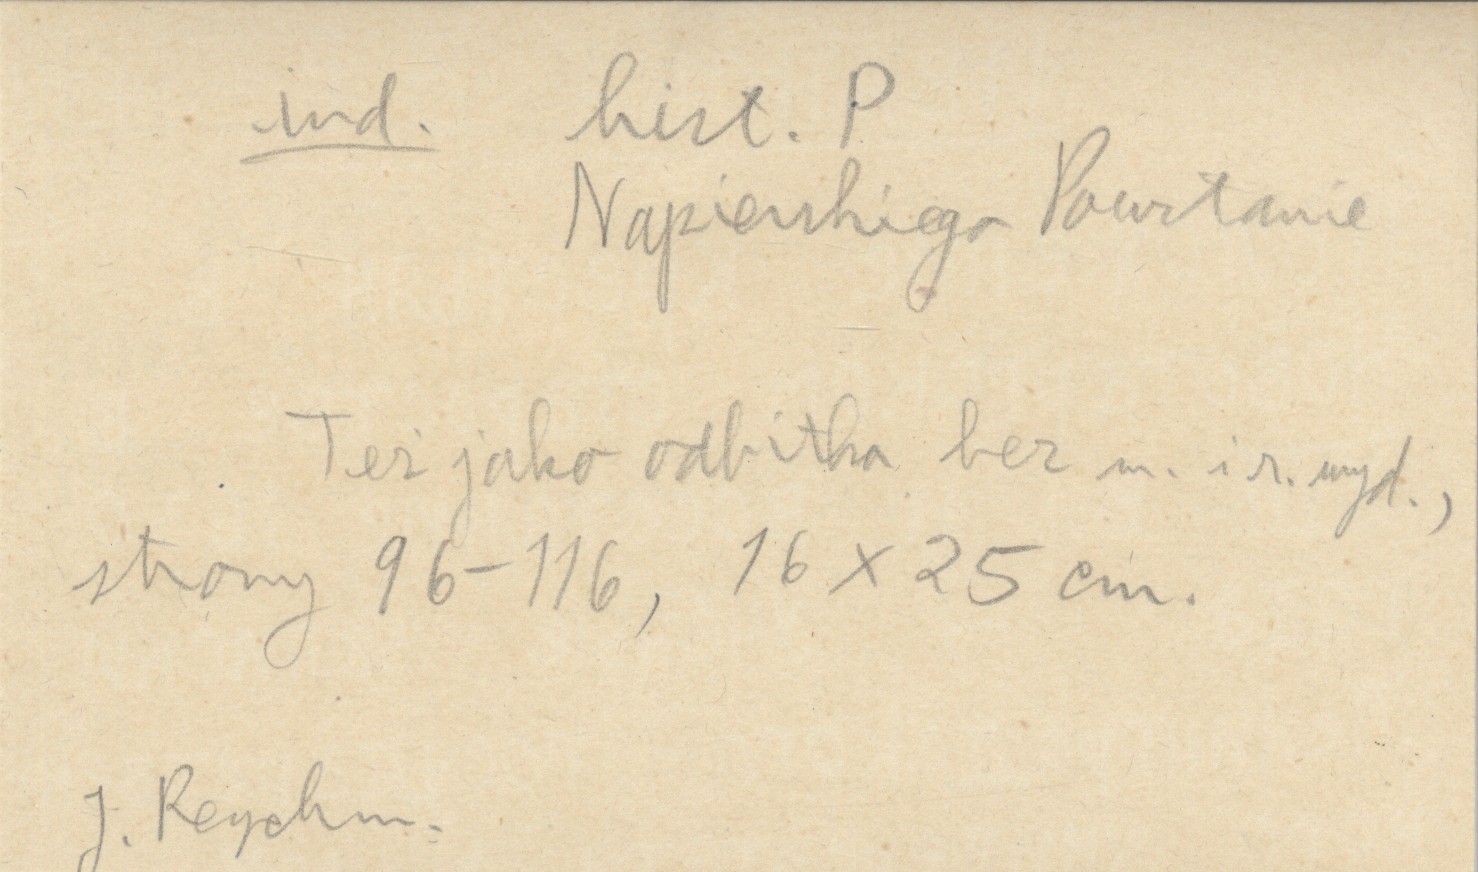 ind. hist. P
Napierskiego Powstanie
Też jako odbitka bez m. i r. wyd.,
strony 96-116, 16 x 25 cm.
J. Reychm.